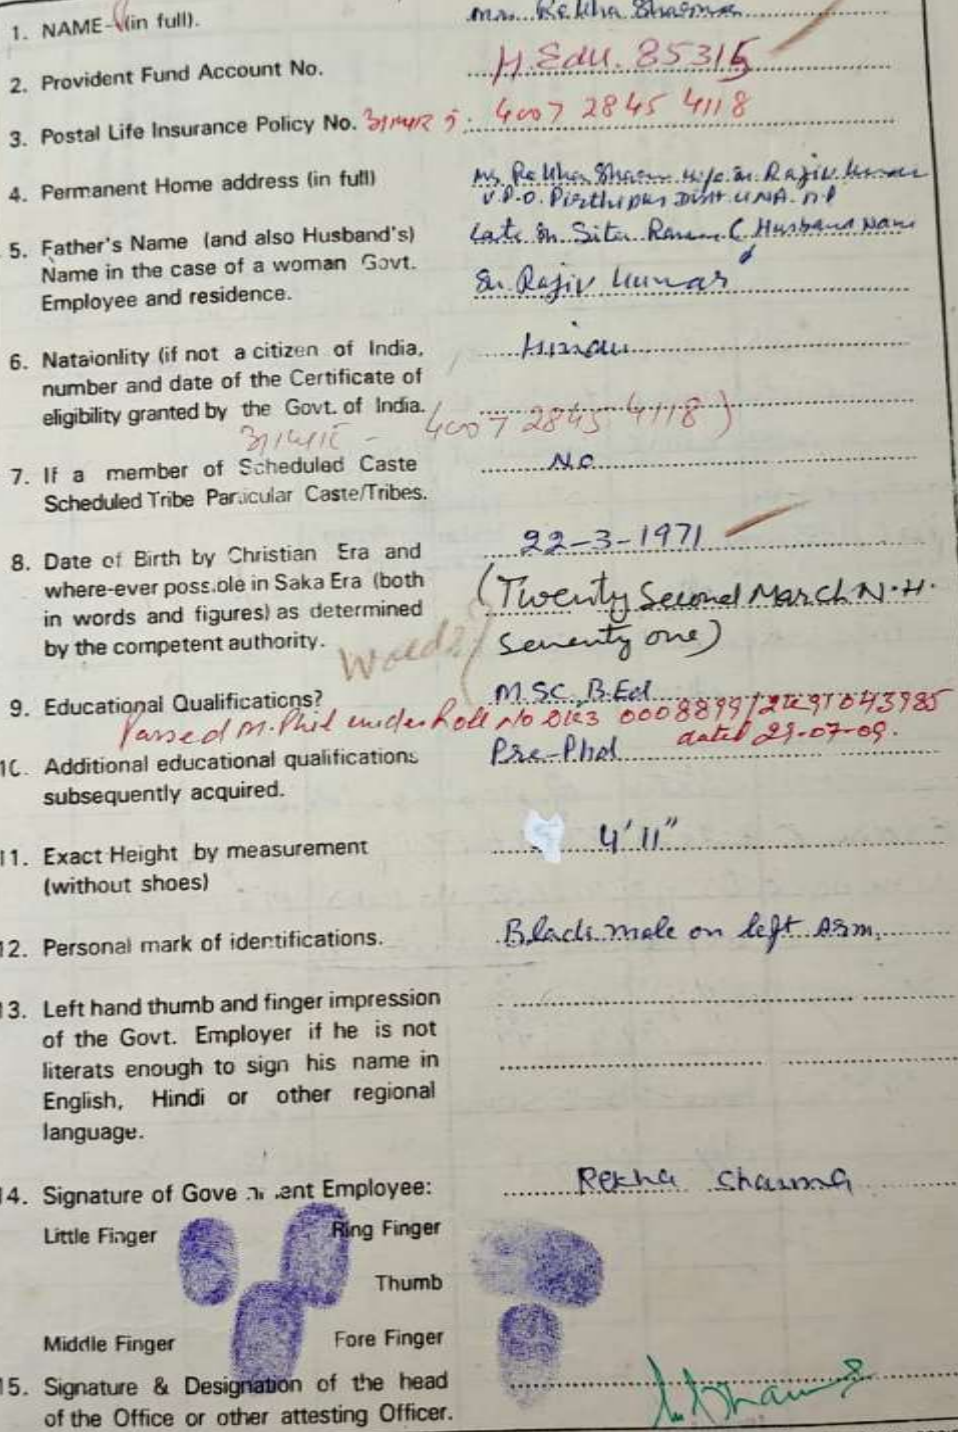 1. NAME-(in full). Mrs. Rekha Sharma
2. Provident Fund Account No. H.Edu. 85315
3. Postal Life Insurance Policy No. आधार नं: 4007 2845 4118
4. Permanent Home address (in full) Mrs Rekha Sharma w/o Sh. Rajiv Kumar
V.P.O. Pirthipur Distt UNA. H.P
5. Father's Name (and also Husband's) Late Sh Sita Ram ( Husband Name
Name in the case of a woman Govt. Sh. Rajiv Kumar
Employee and residence.
6. Nataionlity (if not a citizen of India,
number and date of the Certificate of
eligibility granted by the Govt. of India.
4007 2845 4118)
7. If a member of Scheduled Caste No
Scheduled Tribe Particular Caste/Tribes.
8. Date of Birth by Christian Era and 22-3-1971
where-ever possible in Saka Era (both (Twenty Second March N.H.
in words and figures) as determined Seventy one)
by the competent authority.
9. Educational Qualifications? M.SC. B.Ed
Passed M.Phil under Roll No
dated 29-07-09.
10. Additional educational qualifications Pre-Phd
subsequently acquired.
11. Exact Height by measurement 4' 11"
(without shoes)
12. Personal mark of identifications. Black mole on left Arm.
13. Left hand thumb and finger impression
of the Govt. Employer if he is not
literats enough to sign his name in
English, Hindi or other regional
language.
14. Signature of Government Employee: Rekha Sharma
Little Finger Ring Finger
Thumb
Middle Finger Fore Finger
15. Signature & Designation of the head
of the Office or other attesting Officer.